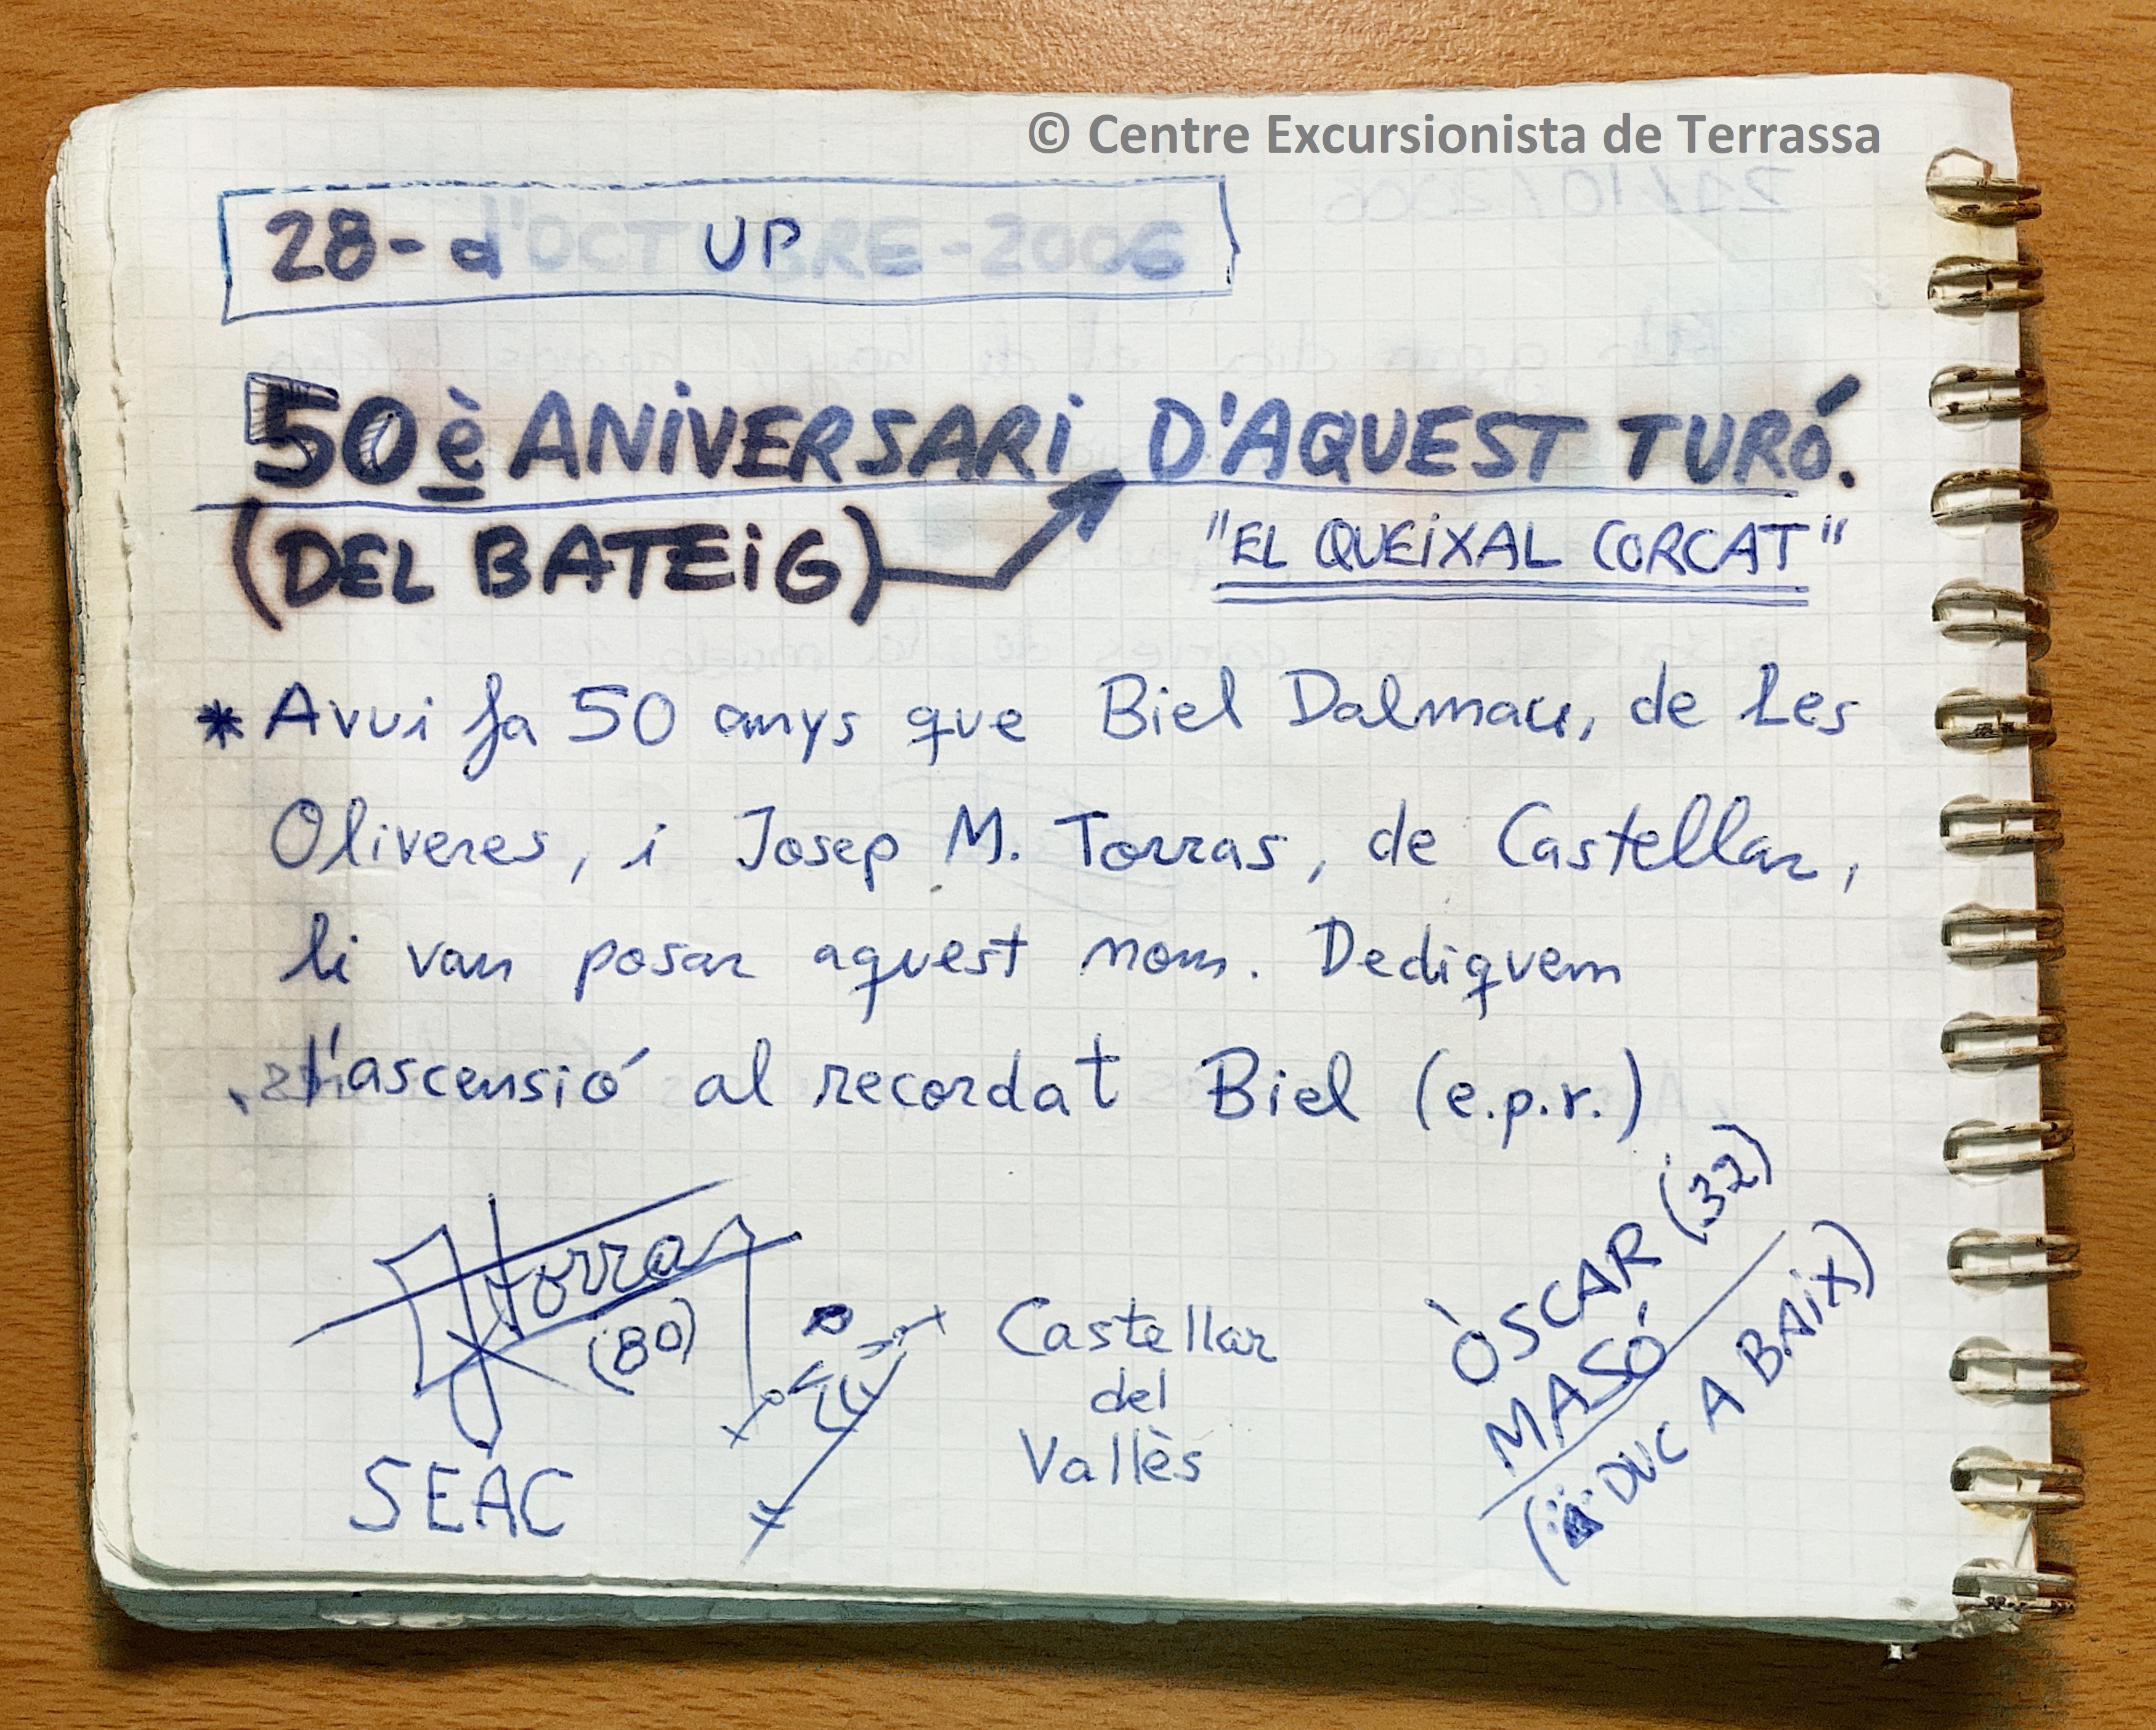 © Centre Excursionista de Terrassa
28-d'OCTUBRE-2006
50è ANiVERSARi D'AQUEST TURÓ.
(DEL BATEiG)
"EL QUEiXAL CORCAT"
* Avui fa 50 anys que Biel Dalmau, de Les
Oliveres, i Josep M. Torras, de Castellar,
li van posar aquest nom. Dediquem
l'ascensió al recordat Biel (e.p.r.)
JTorras
(80)
SEAC
Castellar
del
Vallès
ÒSCAR (32)
MASÓ
DUC A BAiX)